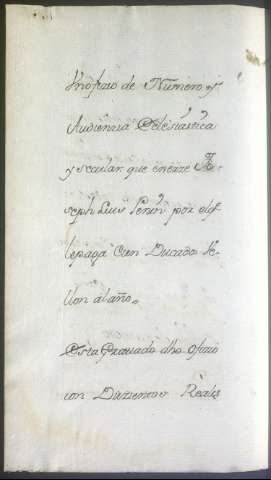 Un ofizio de Numero y
Audienzia Eclesiastica
y secular que exerze Jo-
seph Luis por el
le paga Cien Ducados Ve-
llon al año.
Esta Grauado dho ofizio
con Duzientos Reales